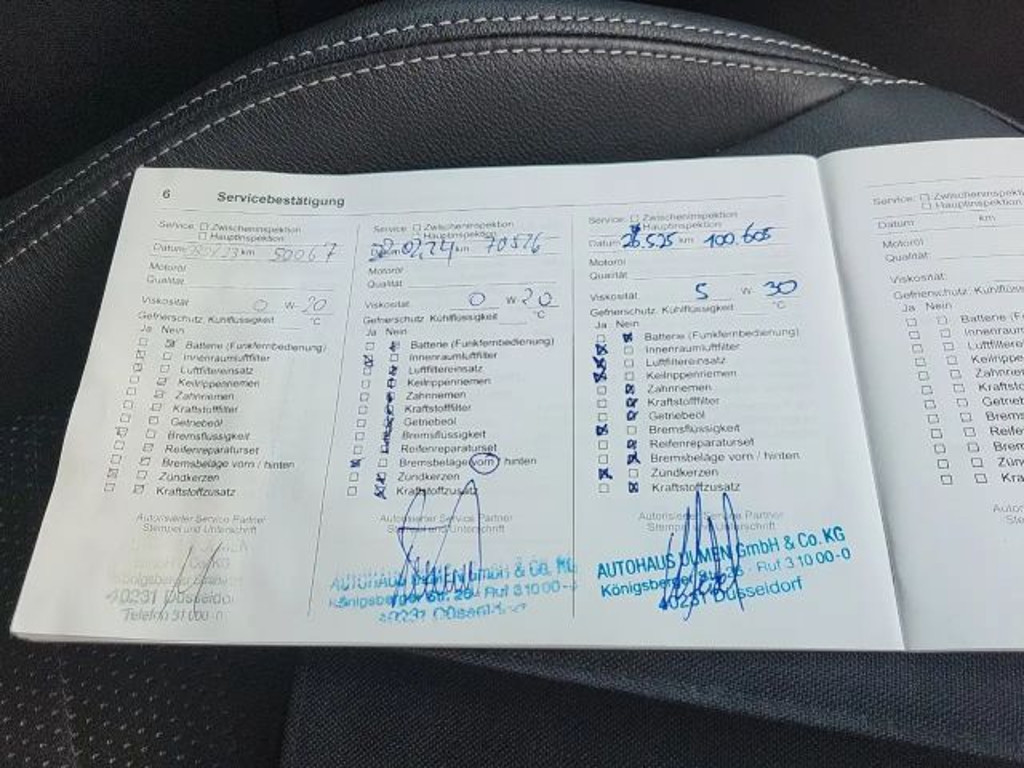 6 Servicebestätigung
Service: Zwischeninspektion
Hauptinspektion
Datum km 50067
Motoröl
Qualität
Viskosität 0 W- 20
Gefrierschutz: Kühlflüssigkeit °C
Ja Nein
Batterie (Funkfernbedienung)
Innenraumluftfilter
Luftfiltereinsatz
Keilrippenriemen
Zahnriemen
Kraftstofffilter
Getriebeöl
Bremsflüssigkeit
Reifenreparaturset
Bremsbeläge vorn / hinten
Zündkerzen
Kraftstoffzusatz
Autorisierter Service Partner
Stempel und Unterschrift
Co. KG
Königsberger
40231 Düsseldorf
Telefon 31 000-0
Service: Zwischeninspektion
Hauptinspektion
Datum 02.24 km 70576
Motoröl
Qualität
Viskosität 0 W- 20
Gefrierschutz: Kühlflüssigkeit °C
Ja Nein
Batterie (Funkfernbedienung)
Innenraumluftfilter
Luftfiltereinsatz
Keilrippenriemen
Zahnriemen
Kraftstofffilter
Getriebeöl
Bremsflüssigkeit
Reifenreparaturset
Bremsbeläge vorn / hinten
Zündkerzen
Kraftstoffzusatz
Autorisierter Service Partner
Stempel und Unterschrift
AUTOHAUS ULMEN GmbH & Co. KG
Königsberger Str. 26 - Ruf 3 10 00-0
40231 Düsseldorf
Service: Zwischeninspektion
Hauptinspektion
Datum 26.5.25 km 100.605
Motoröl
Qualität
Viskosität 5 W- 30
Gefrierschutz: Kühlflüssigkeit °C
Ja Nein
Batterie (Funkfernbedienung)
Innenraumluftfilter
Luftfiltereinsatz
Keilrippenriemen
Zahnriemen
Kraftstofffilter
Getriebeöl
Bremsflüssigkeit
Reifenreparaturset
Bremsbeläge vorn / hinten
Zündkerzen
Kraftstoffzusatz
Autorisierter Service Partner
Stempel und Unterschrift
AUTOHAUS ULMEN GmbH & Co. KG
Königsberger Str. 26 - Ruf 3 10 00-0
40231 Düsseldorf
Service: Zwischeninspektion
Hauptinspektion
Datum km
Motoröl
Qualität:
Viskosität:
Gefrierschutz: Kühlflüss
Ja Nein
Batterie (F
Innenraum
Luftfiltere
Keilrippe
Zahnrie
Kraftsto
Getrieb
Brems
Reife
Brem
Zün
Kra
Autoris
Ste